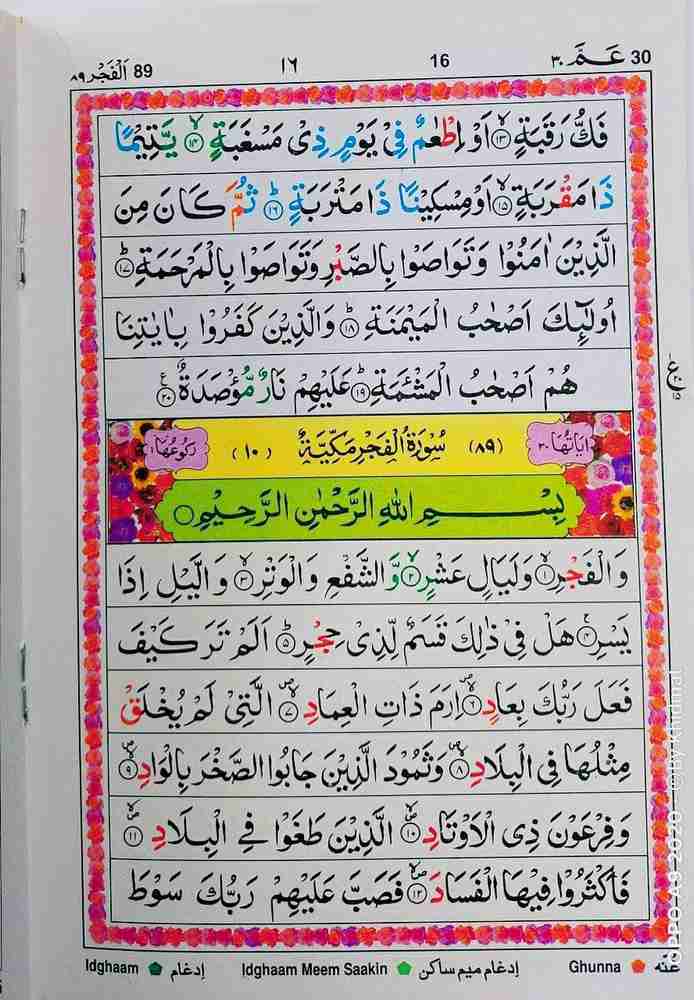 30 عَمّ ٣٠ 16 ١٦ 89 اَلْفَجْر ٨٩
فَكُّ رَقَبَةٍ ۙ‏﴿۱۳﴾ اَوْ اِطْعٰمٌ فِىْ يَوْمٍ ذِىْ مَسْغَبَةٍ ۙ‏﴿۱۴﴾ يَّتِيْمًا
ذَا مَقْرَبَةٍ ۙ‏﴿۱۵﴾ اَوْ مِسْكِيْنًا ذَا مَتْرَبَةٍ ؕ‏﴿۱۶﴾ ثُمَّ كَانَ مِنَ
الَّذِيْنَ اٰمَنُوْا وَتَوَاصَوْا بِالصَّبْرِ وَتَوَاصَوْا بِالْمَرْحَمَةِ ؕ‏﴿۱۷﴾
اُولٰٓئِكَ اَصْحٰبُ الْمَيْمَنَةِ ؕ‏﴿۱۸﴾ وَالَّذِيْنَ كَفَرُوْا بِاٰيٰتِنَا
هُمْ اَصْحٰبُ الْمَشْئَمَةِ ؕ‏﴿۱۹﴾ عَلَيْهِمْ نَارٌ مُّؤْصَدَةٌ ‏﴿۲۰﴾
ع
۲۰
۱۵
اٰيَاتُهَا ۳۰ (۸۹) سُوْرَةُ الْفَجْرِ مَكِّيَّةٌ (۱۰) رُكُوْعُهَا ۱
بِسْمِ اللّٰهِ الرَّحْمٰنِ الرَّحِيْمِ
وَالْفَجْرِ ۙ‏﴿۱﴾ وَلَيَالٍ عَشْرٍ ۙ‏﴿۲﴾ وَّالشَّفْعِ وَالْوَتْرِ ۙ‏﴿۳﴾ وَالَّيْلِ اِذَا
يَسْرِ ۚ‏﴿۴﴾ هَلْ فِىْ ذٰلِكَ قَسَمٌ لِّذِىْ حِجْرٍ ؕ‏﴿۵﴾ اَلَمْ تَرَ كَيْفَ
فَعَلَ رَبُّكَ بِعَادٍ ۙ‏﴿۶﴾ اِرَمَ ذَاتِ الْعِمَادِ ۙ‏﴿۷﴾ الَّتِىْ لَمْ يُخْلَقْ
مِثْلُهَا فِى الْبِلَادِ ۙ‏﴿۸﴾ وَثَمُوْدَ الَّذِيْنَ جَابُوا الصَّخْرَ بِالْوَادِ ۙ‏﴿۹﴾
وَفِرْعَوْنَ ذِى الْاَوْتَادِ ۙ‏﴿۱۰﴾ الَّذِيْنَ طَغَوْا فِى الْبِلَادِ ۙ‏﴿۱۱﴾
فَاَكْثَرُوْا فِيْهَا الْفَسَادَ ۙ‏﴿۱۲﴾ فَصَبَّ عَلَيْهِمْ رَبُّكَ سَوْطَ
Idghaam اِدغام Idghaam Meem Saakin اِدغام میم ساکن Ghunna غنّه
OPPO A9 2020 ©By Khidmat